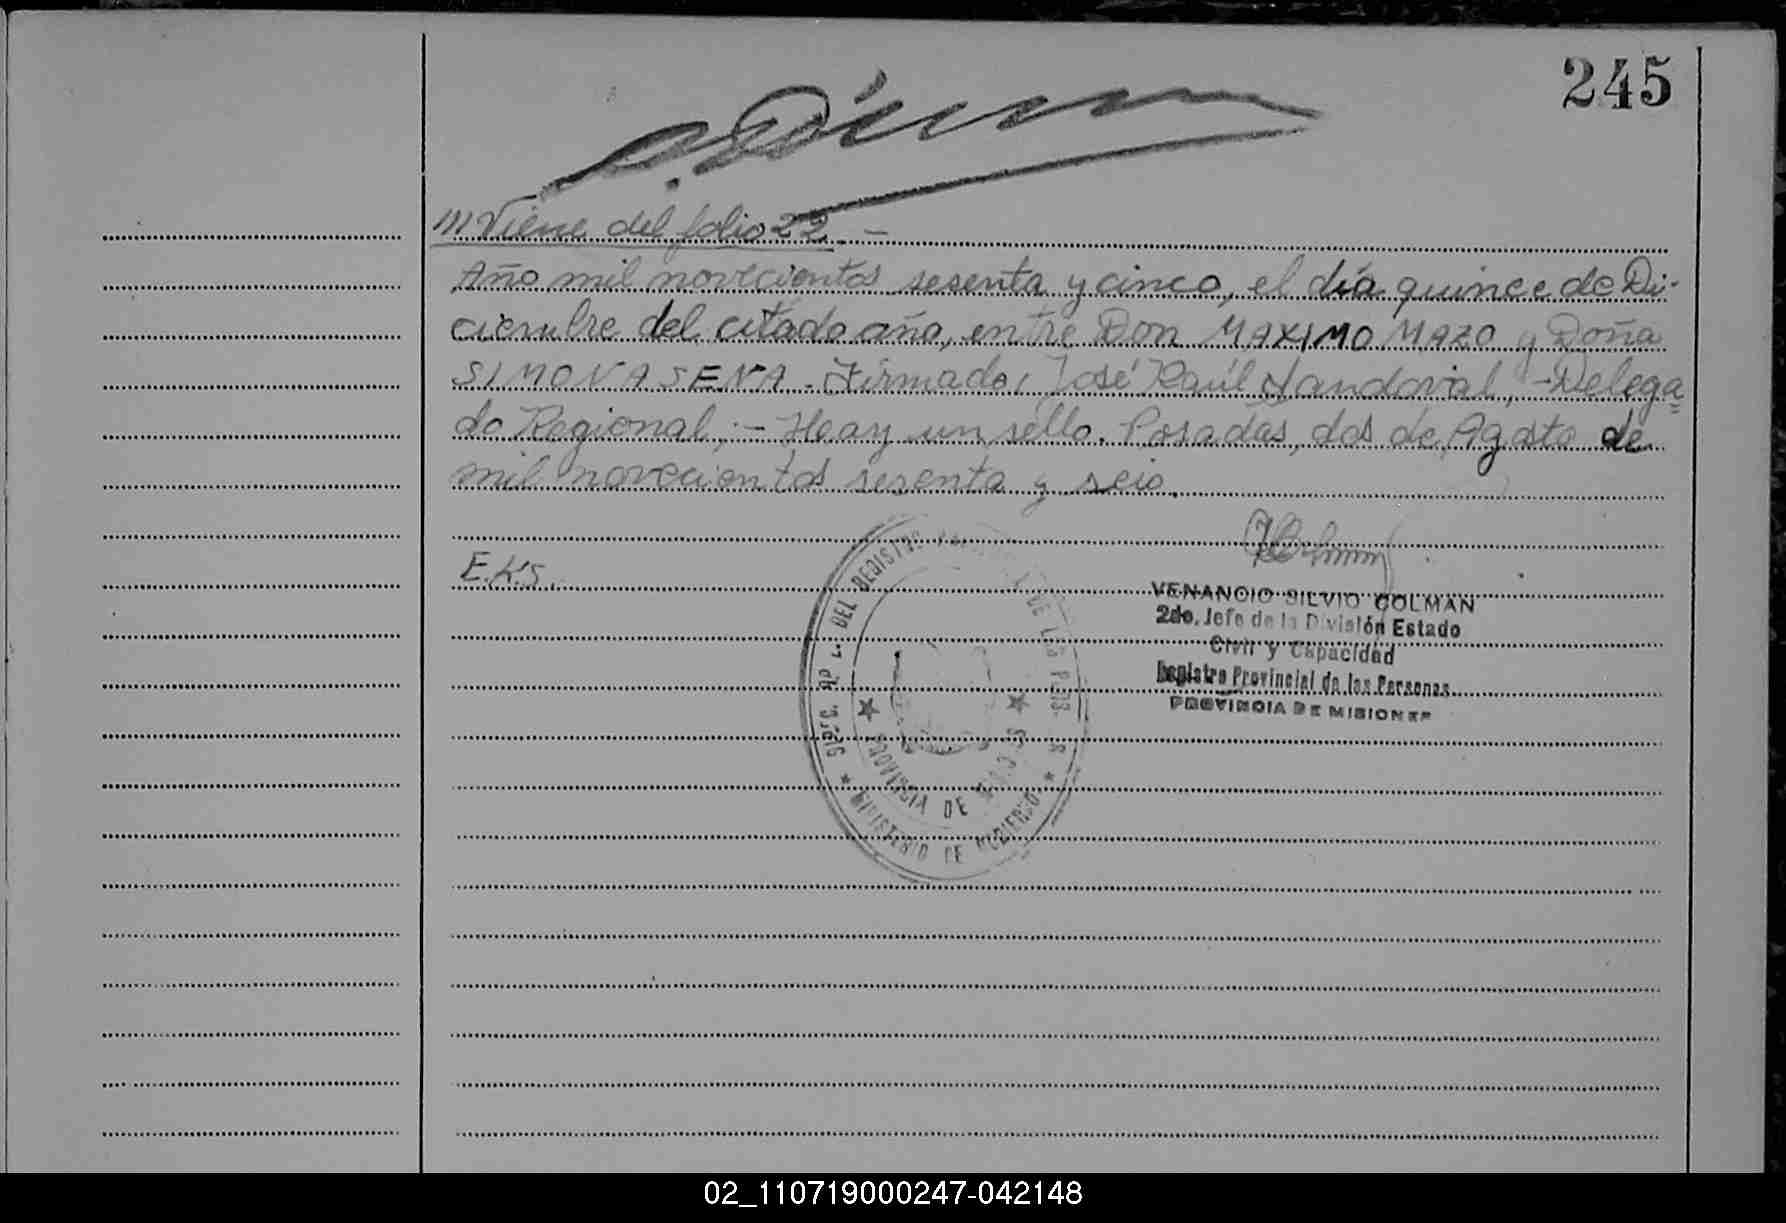 245
/// Viene del folio 22. -
Año mil novecientos sesenta y cinco, el día quince de Di-
ciembre del citado año, entre Don MAXIMO MAZO y Doña
SIMONA SENA. Firmado: José Raúl Sandoval, - Delega=
do Regional, - Heay un sello. Posadas, dos de Agosto de
mil novecientos sesenta y seis.
E.K.S.
VENANCIO SILVIO COLMAN
2do. Jefe de la División Estado
Civil y Capacidad
Registro Provincial de las Personas
PROVINCIA DE MISIONES
DEL REGISTRO DE LAS PERS.
PROVINCIA DE MISIONES
MINISTERIO DE GOBIERNO
02_110719000247-042148